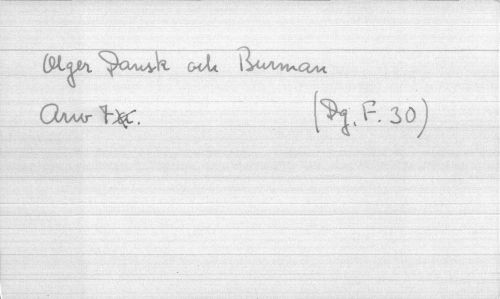 Olger Dansk och Burman
Arw 7. (Dg. F. 30)